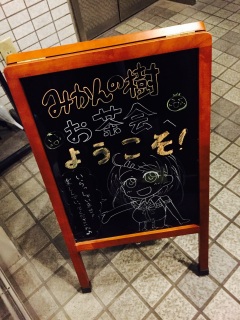 みかんの樹
お茶会へ
ようこそ!